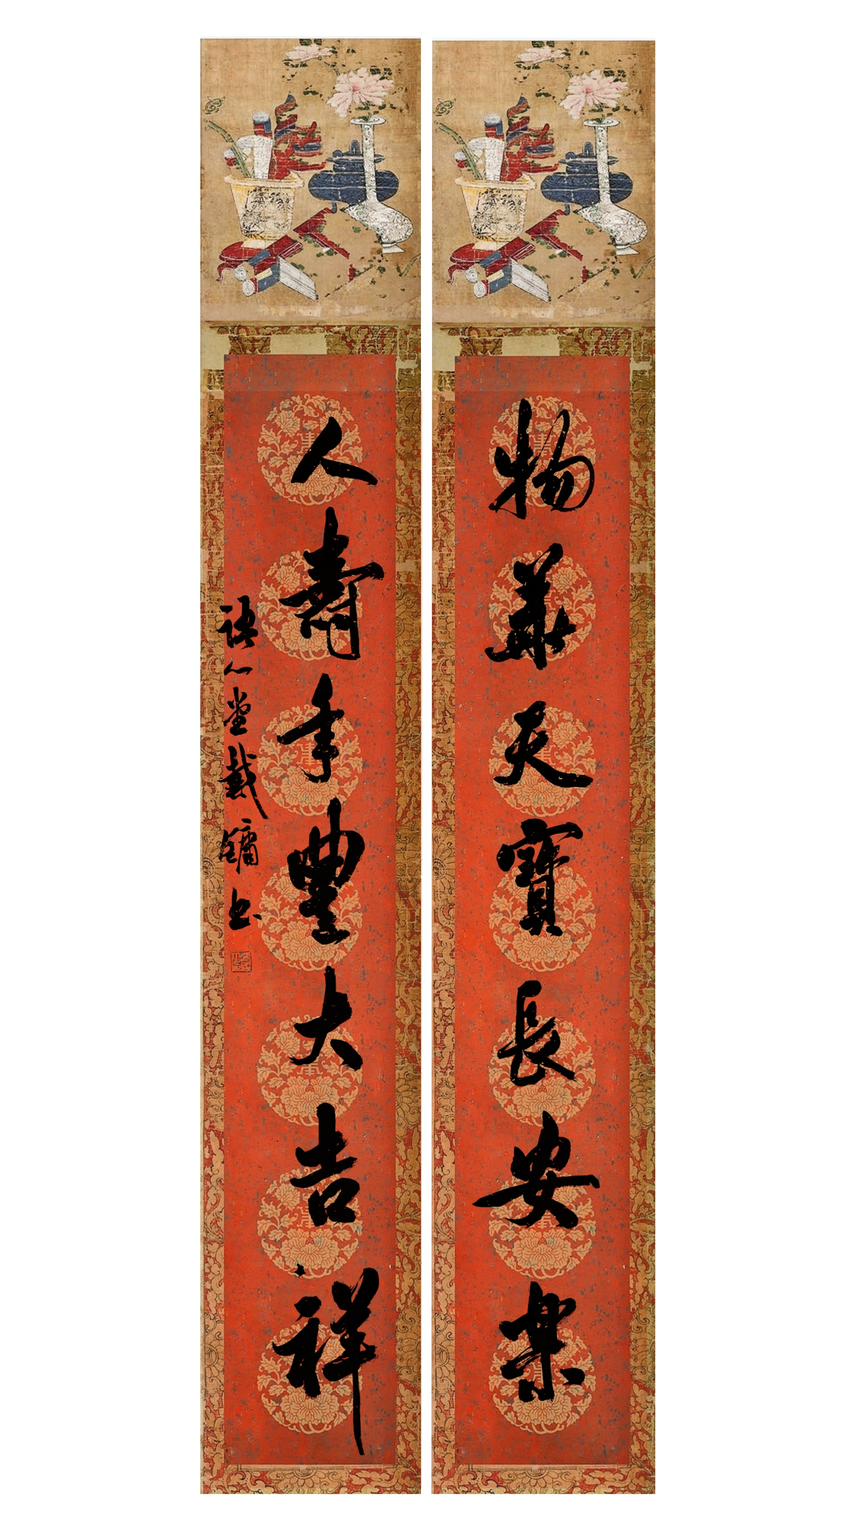 物華天寶長安樂
人壽年豐大吉祥
語心堂戴鏞書